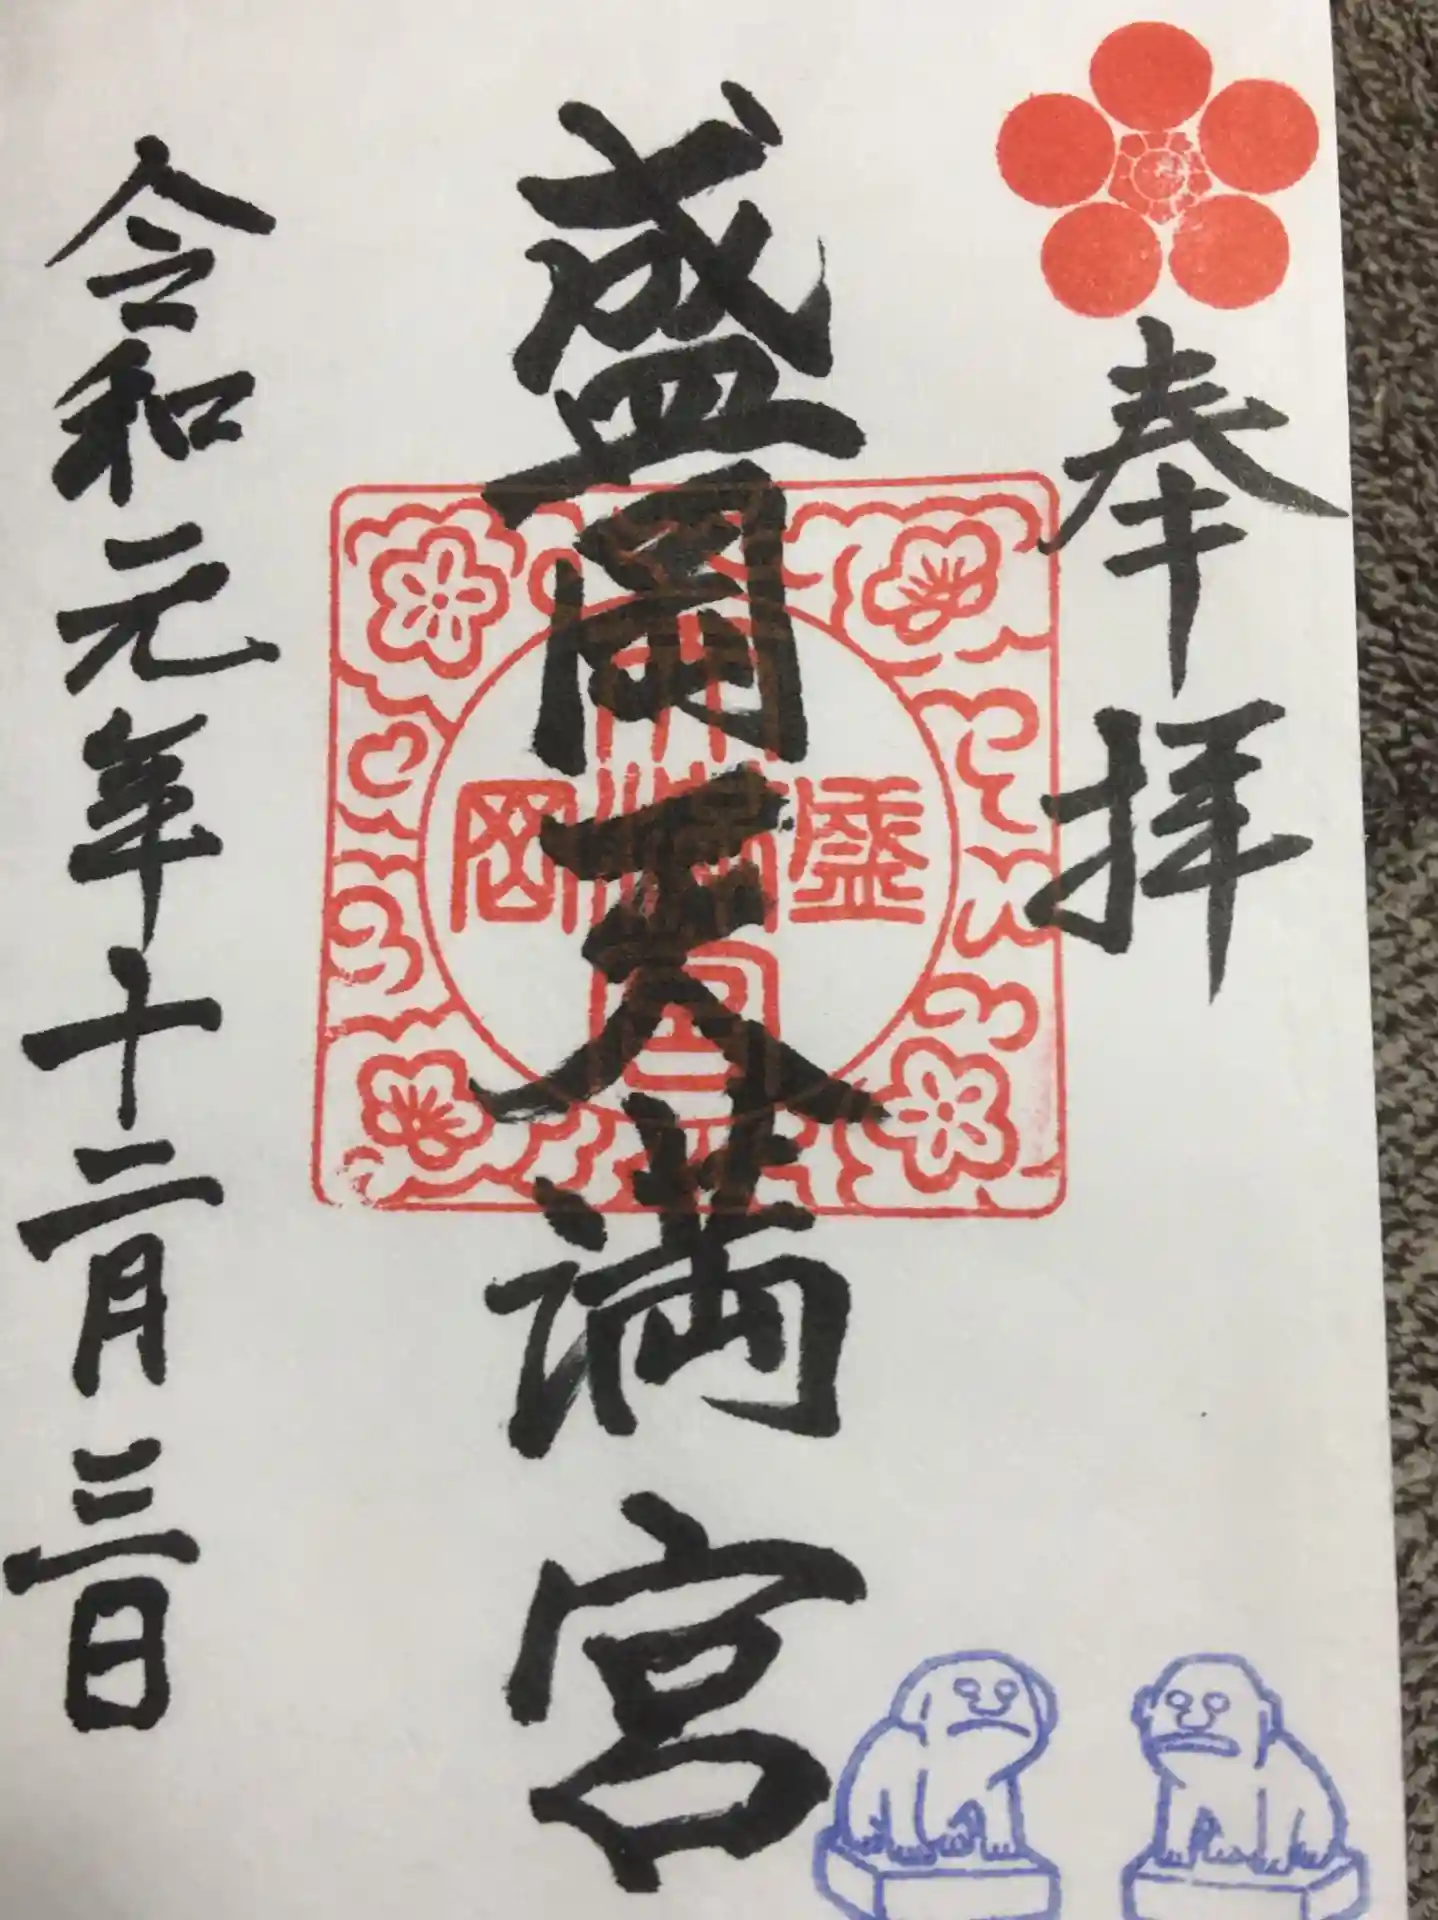 奉拝
盛岡天満宮
盛岡
令和元年十二月三日